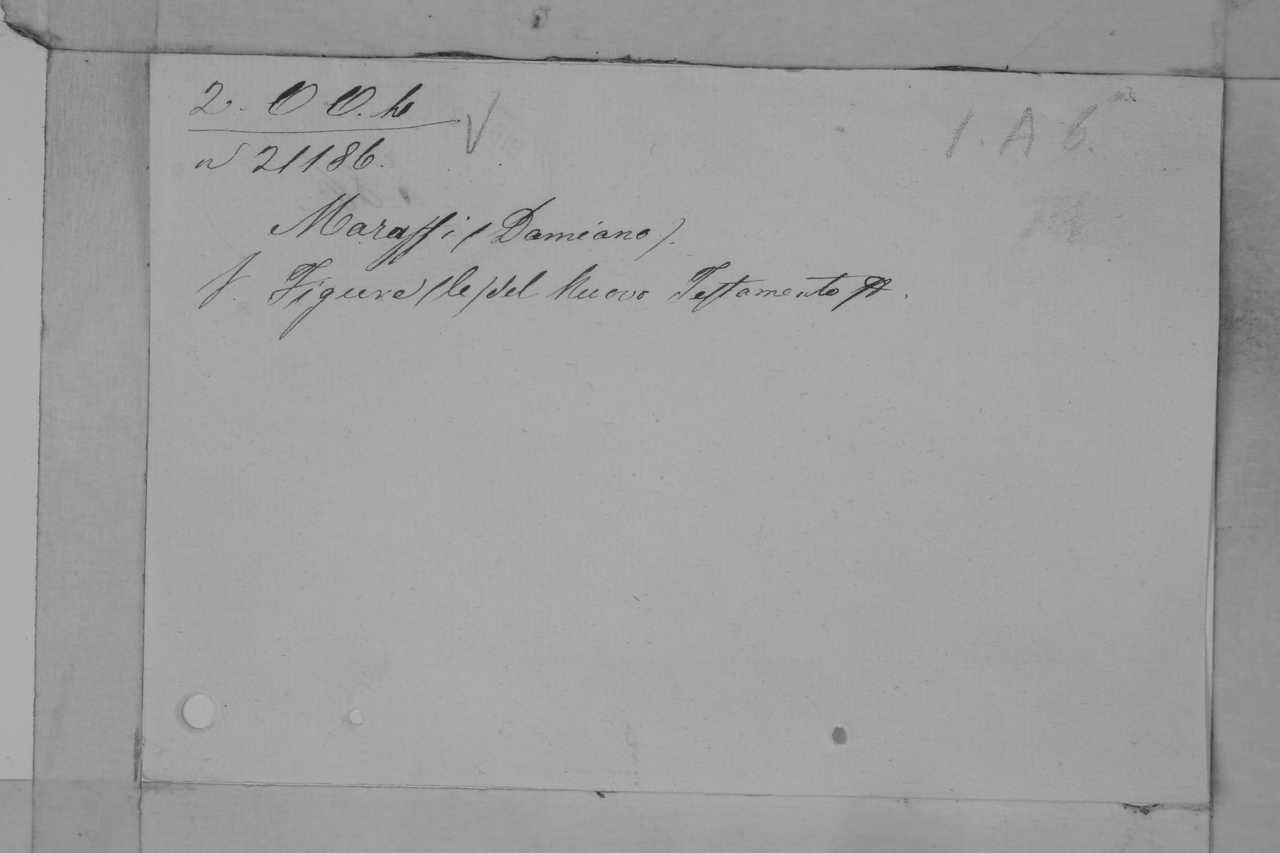 2. O O. h
1. A 6.
n 21186.
Maraffi (Damiano).
V. Figure (le) del Nuovo Testamento